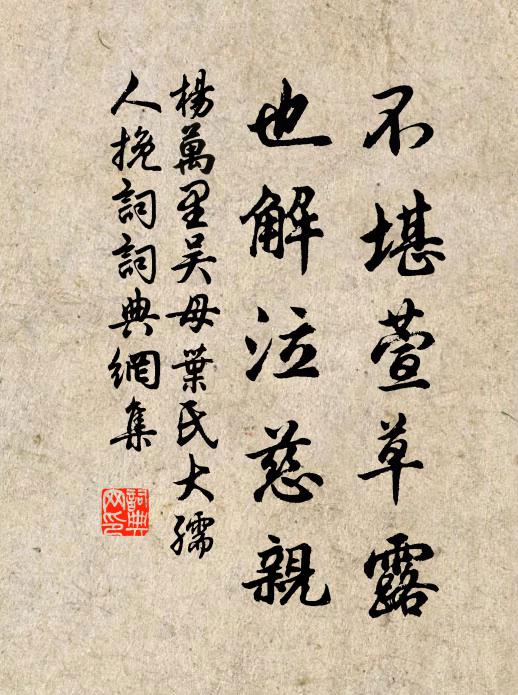 不堪萱草露
也解泣慈親
楊萬里吳母葉氏大孺
人挽詞詞典網集
詞典
网印